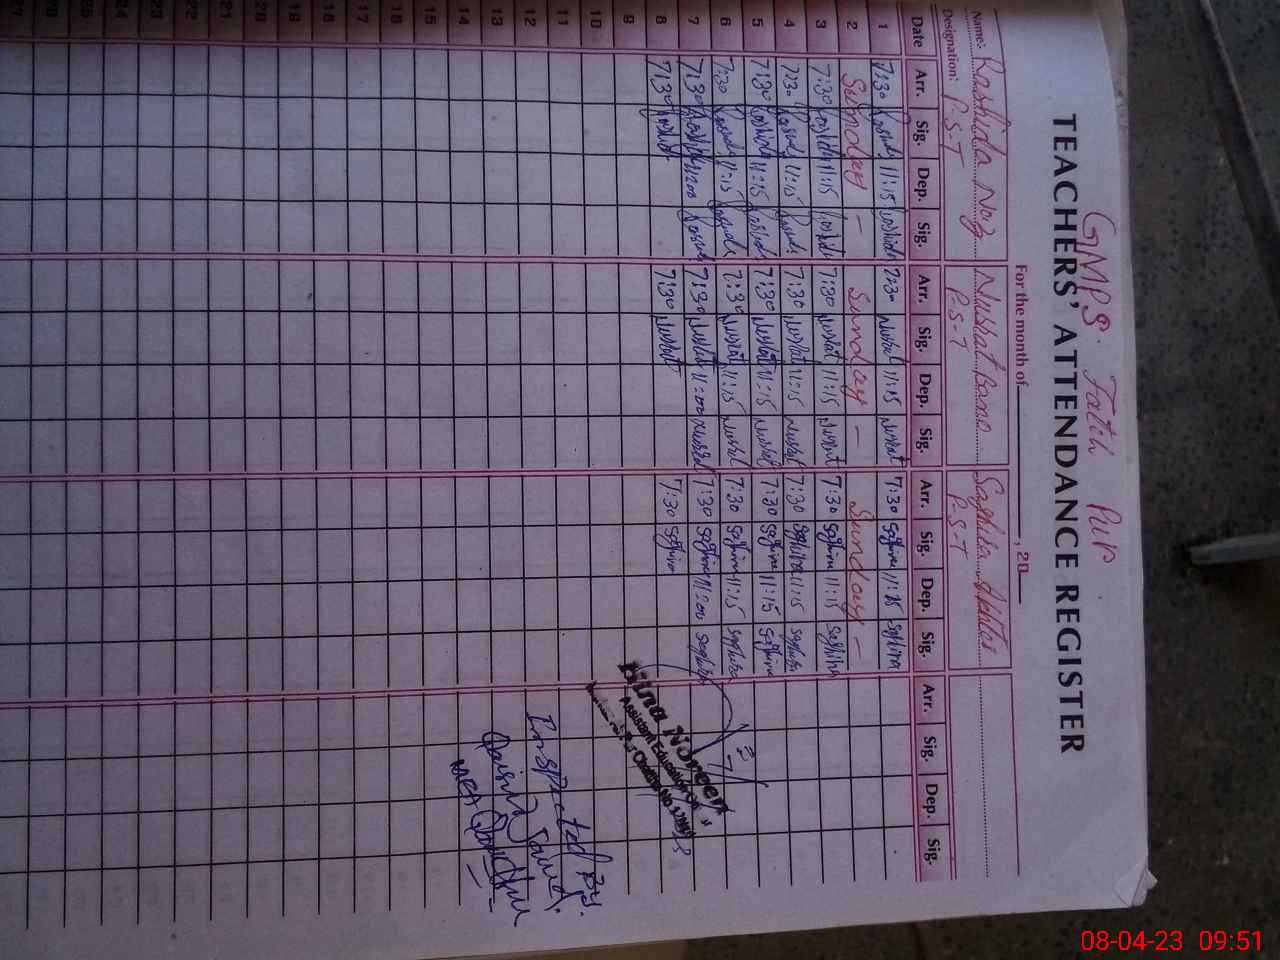 GMPS. Fateh Pur
TEACHERS' ATTENDANCE REGISTER
For the month of , 20
Name:- Rashida Naz Nusrat Bano Saghira Akhter
Designation: P-S-T P-S-T P-S-T
Date Arr. Sig. Dep. Sig. Arr. Sig. Dep. Sig. Arr. Sig. Dep. Sig. Arr. Sig. Dep. Sig.
1 7:30 Rashida 11:15 Rashida 7:30 Nusrat 11:15 Nusrat 7:30 Saghira 11:15 Saghira
2 Sunday - Sunday - Sunday -
3 7:30 Rashida 11:15 Rashida 7:30 Nusrat 11:15 Nusrat 7:30 Saghira 11:15 Saghira
4 7:30 Rashida 11:15 Rashida 7:30 Nusrat 11:15 Nusrat 7:30 Saghira 11:15 Saghira
5 7:30 Rashida 11:15 Rashida 7:30 Nusrat 11:15 Nusrat 7:30 Saghira 11:15 Saghira
6 7:30 Rashida 11:15 Rashida 7:30 Nusrat 11:15 Nusrat 7:30 Saghira 11:15 Saghira
7 7:30 Rashida 11:00 Rashida 7:30 Nusrat 11:00 Nusrat 7:30 Saghira 11:00 Saghira
8 7:30 Rashida 7:30 Nusrat 7:30 Saghira
9
10
11
12
13
14
15
16
17
18
19
20
21
22
23
24
25
26
27
Noreen
Assistant Education
Inspected By.
MEA
08-04-23 09:51